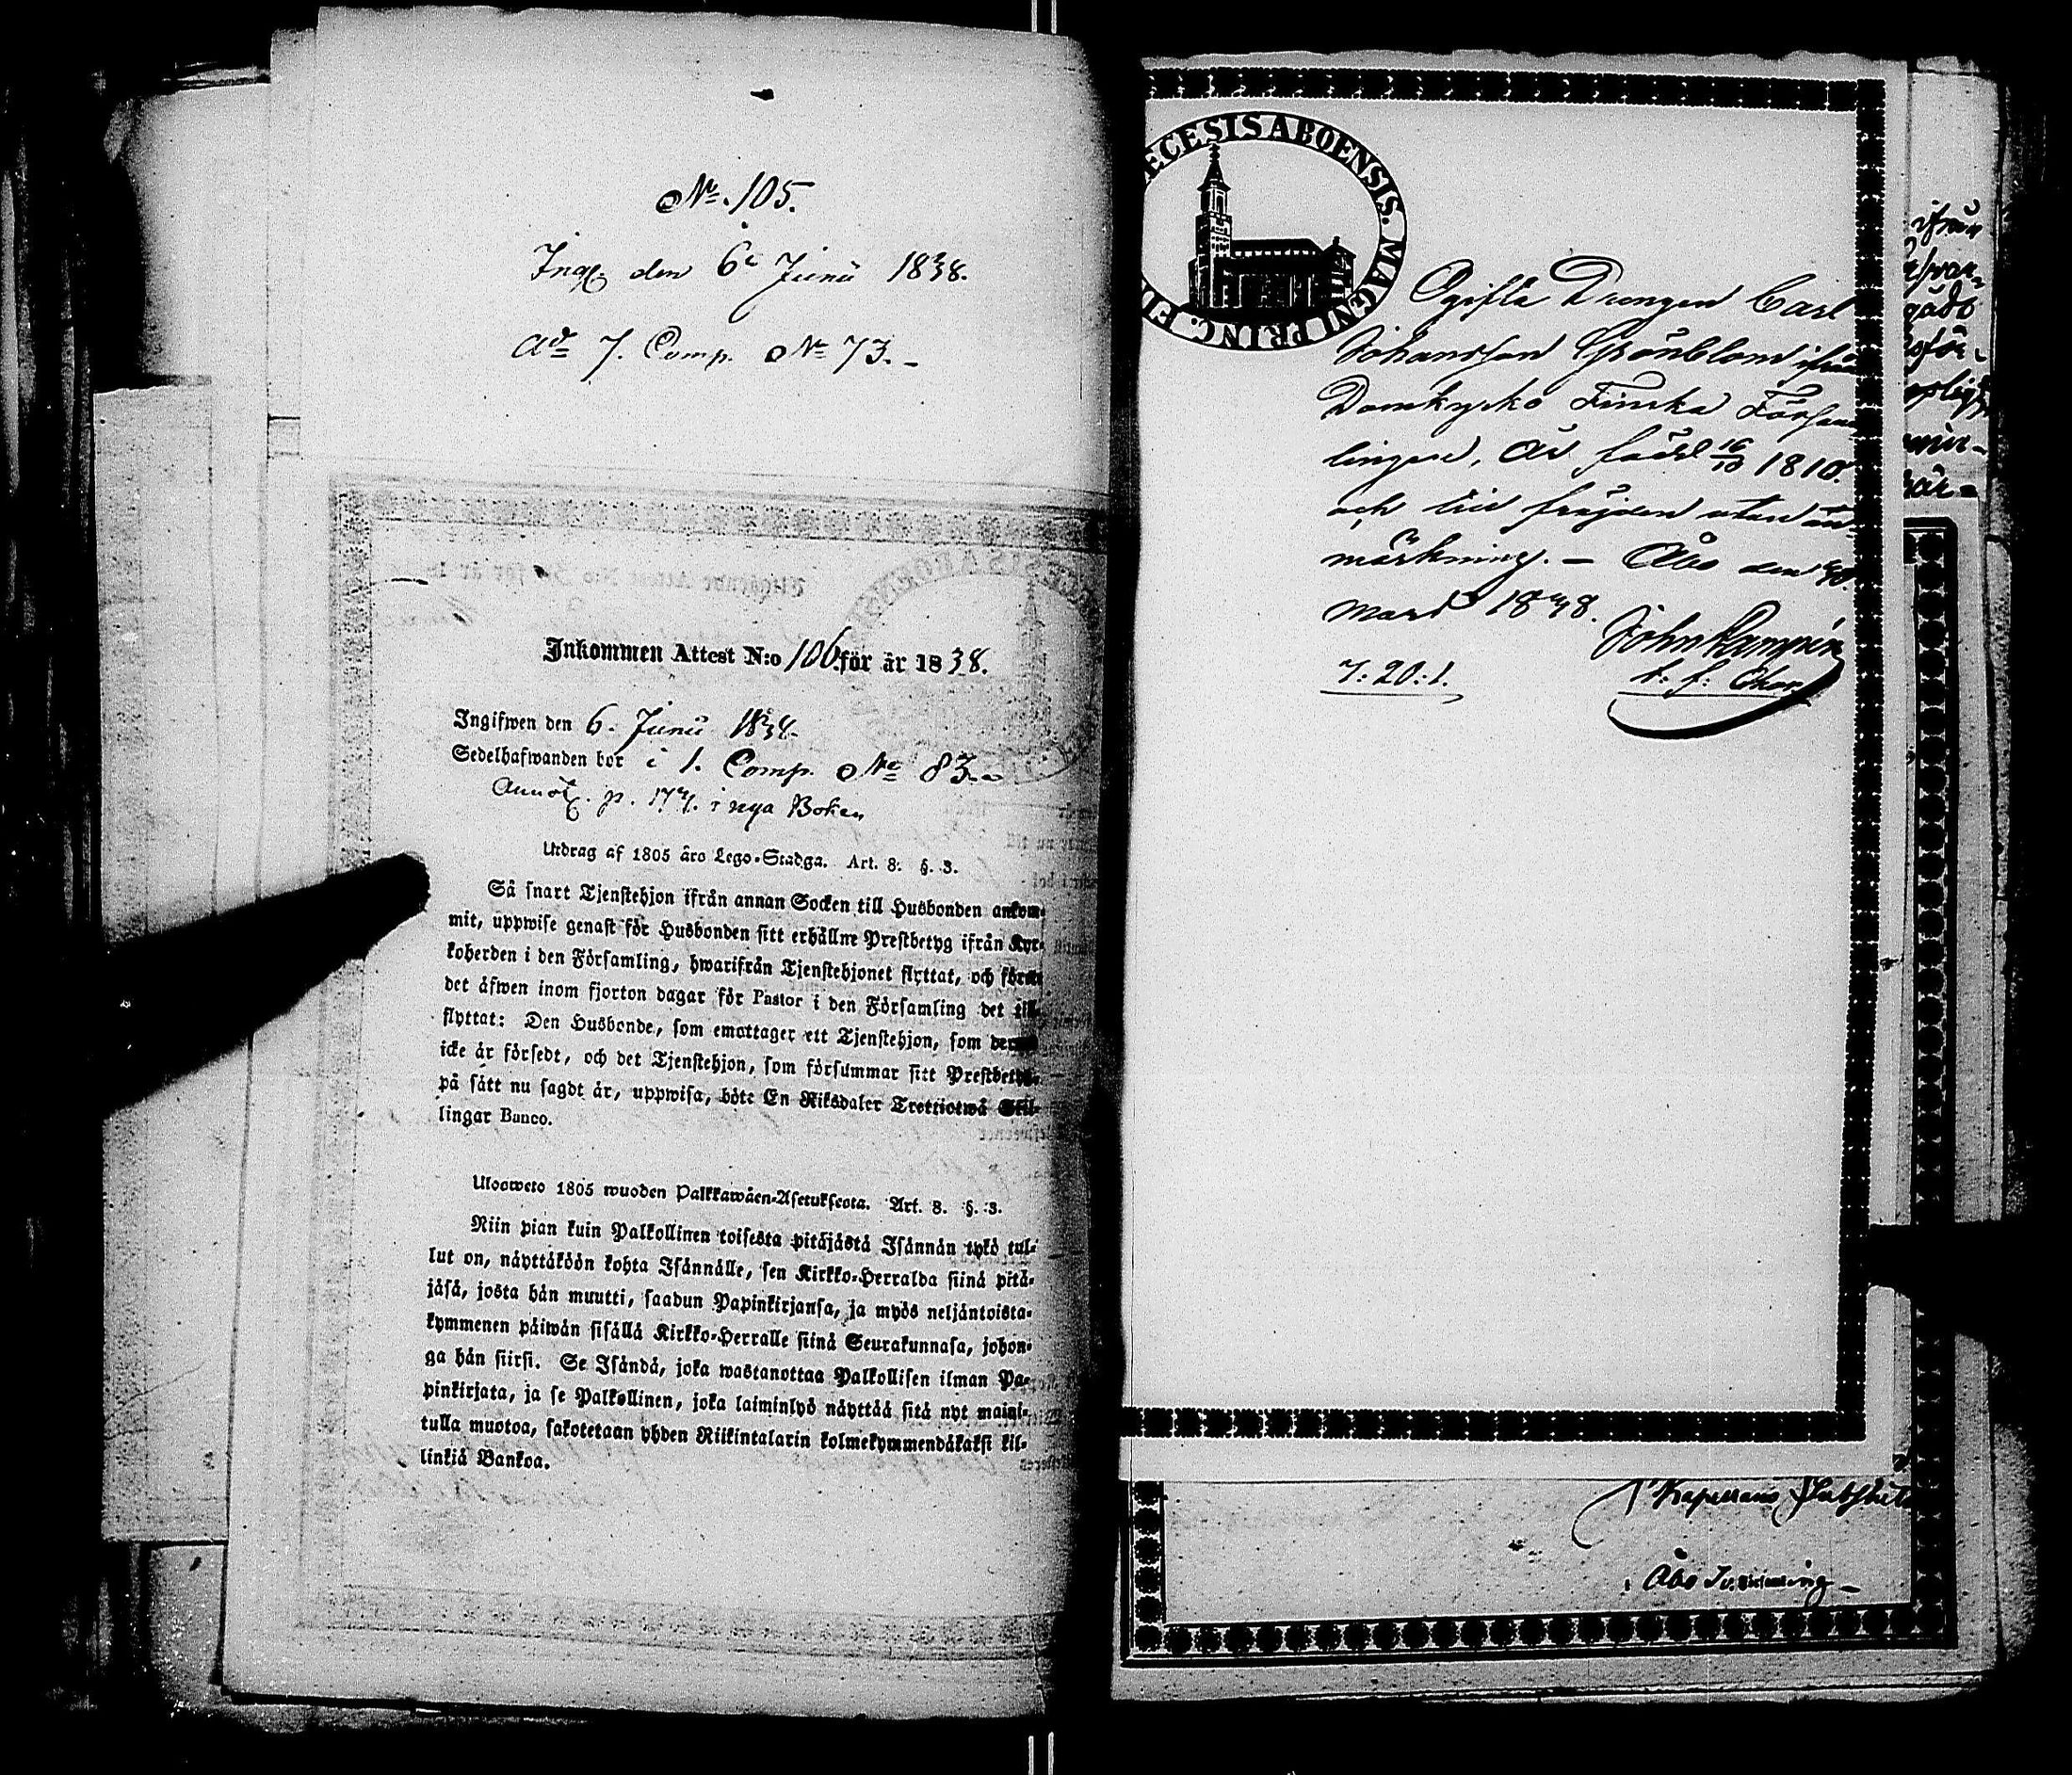 № 105.
Ingf. den 6e Junii 1838.
Ad 7. Comp. № 73.-
Inkommen Attest N:o 106 för år 1838.
Ingifwen den 6. Junii 1838.
Sedelhafwanden bor i 1. Comp. № 83.
Annot. p. 174. i nya Boken
Utdrag af 1805 års Lego-Stadga. Art. 8. §. 3.
Så snart Tjenstehjon ifrån annan Socken till Husbonden ankom-
mit, uppwise genast för Husbonden sitt erhållne Prestbetyg ifrån Kyr-
koherden i den Församling, hwarifrån Tjenstehjonet flyttat, och förete
det äfwen inom fjorton dagar för Pastor i den Församling det till-
flyttat: Den Husbonde, som emottager ett Tjenstehjon, som dermed
icke är försedt, och det Tjenstehjon, som försummar sitt Prestbetyg,
på sätt nu sagdt är, uppwisa, böte En Riksdaler Trettiotwå Skil-
lingar Banco.
Ulosweto 1805 wuoden Palkkawäen-Asetuksesta. Art. 8. §. 3.
Niin pian kuin Palkollinen toisesta pitäjästä Isännän tykö tul-
lut on, näyttäköön kohta Isännälle, sen Kirkko-Herralda siinä pitä-
jäsä, josta hän muutti, saadun Papinkirjansa, ja myös neljäntoista-
kymmenen päiwän sisällä Kirkko-Herralle siinä Seurakunnasa, johon-
ga hän siirsi. Se Isändä, joka wastanottaa Palkollisen ilman Pa-
pinkirjata, ja se Palkollinen, joka laiminlyö näyttää sitä nyt maini-
tulla muotoa, sakotetaan yhden Riikintalarin kolmekymmendäkaksi kil-
linkiä Bankoa.
ECESIS ABOENSIS. MAGNI PRINC. FIN
Ogifta Drengen Carl
Johansson Grönblom ifrån
Domkyrko Finska Försam
lingen, är född 16/10 1810.
och till frejden utan an
märkning. - Åbo den
Mars 1838.
John Rampén
t. f. Ekon
7: 20: 1.
ifrån
gado
Kapellans
Åbo